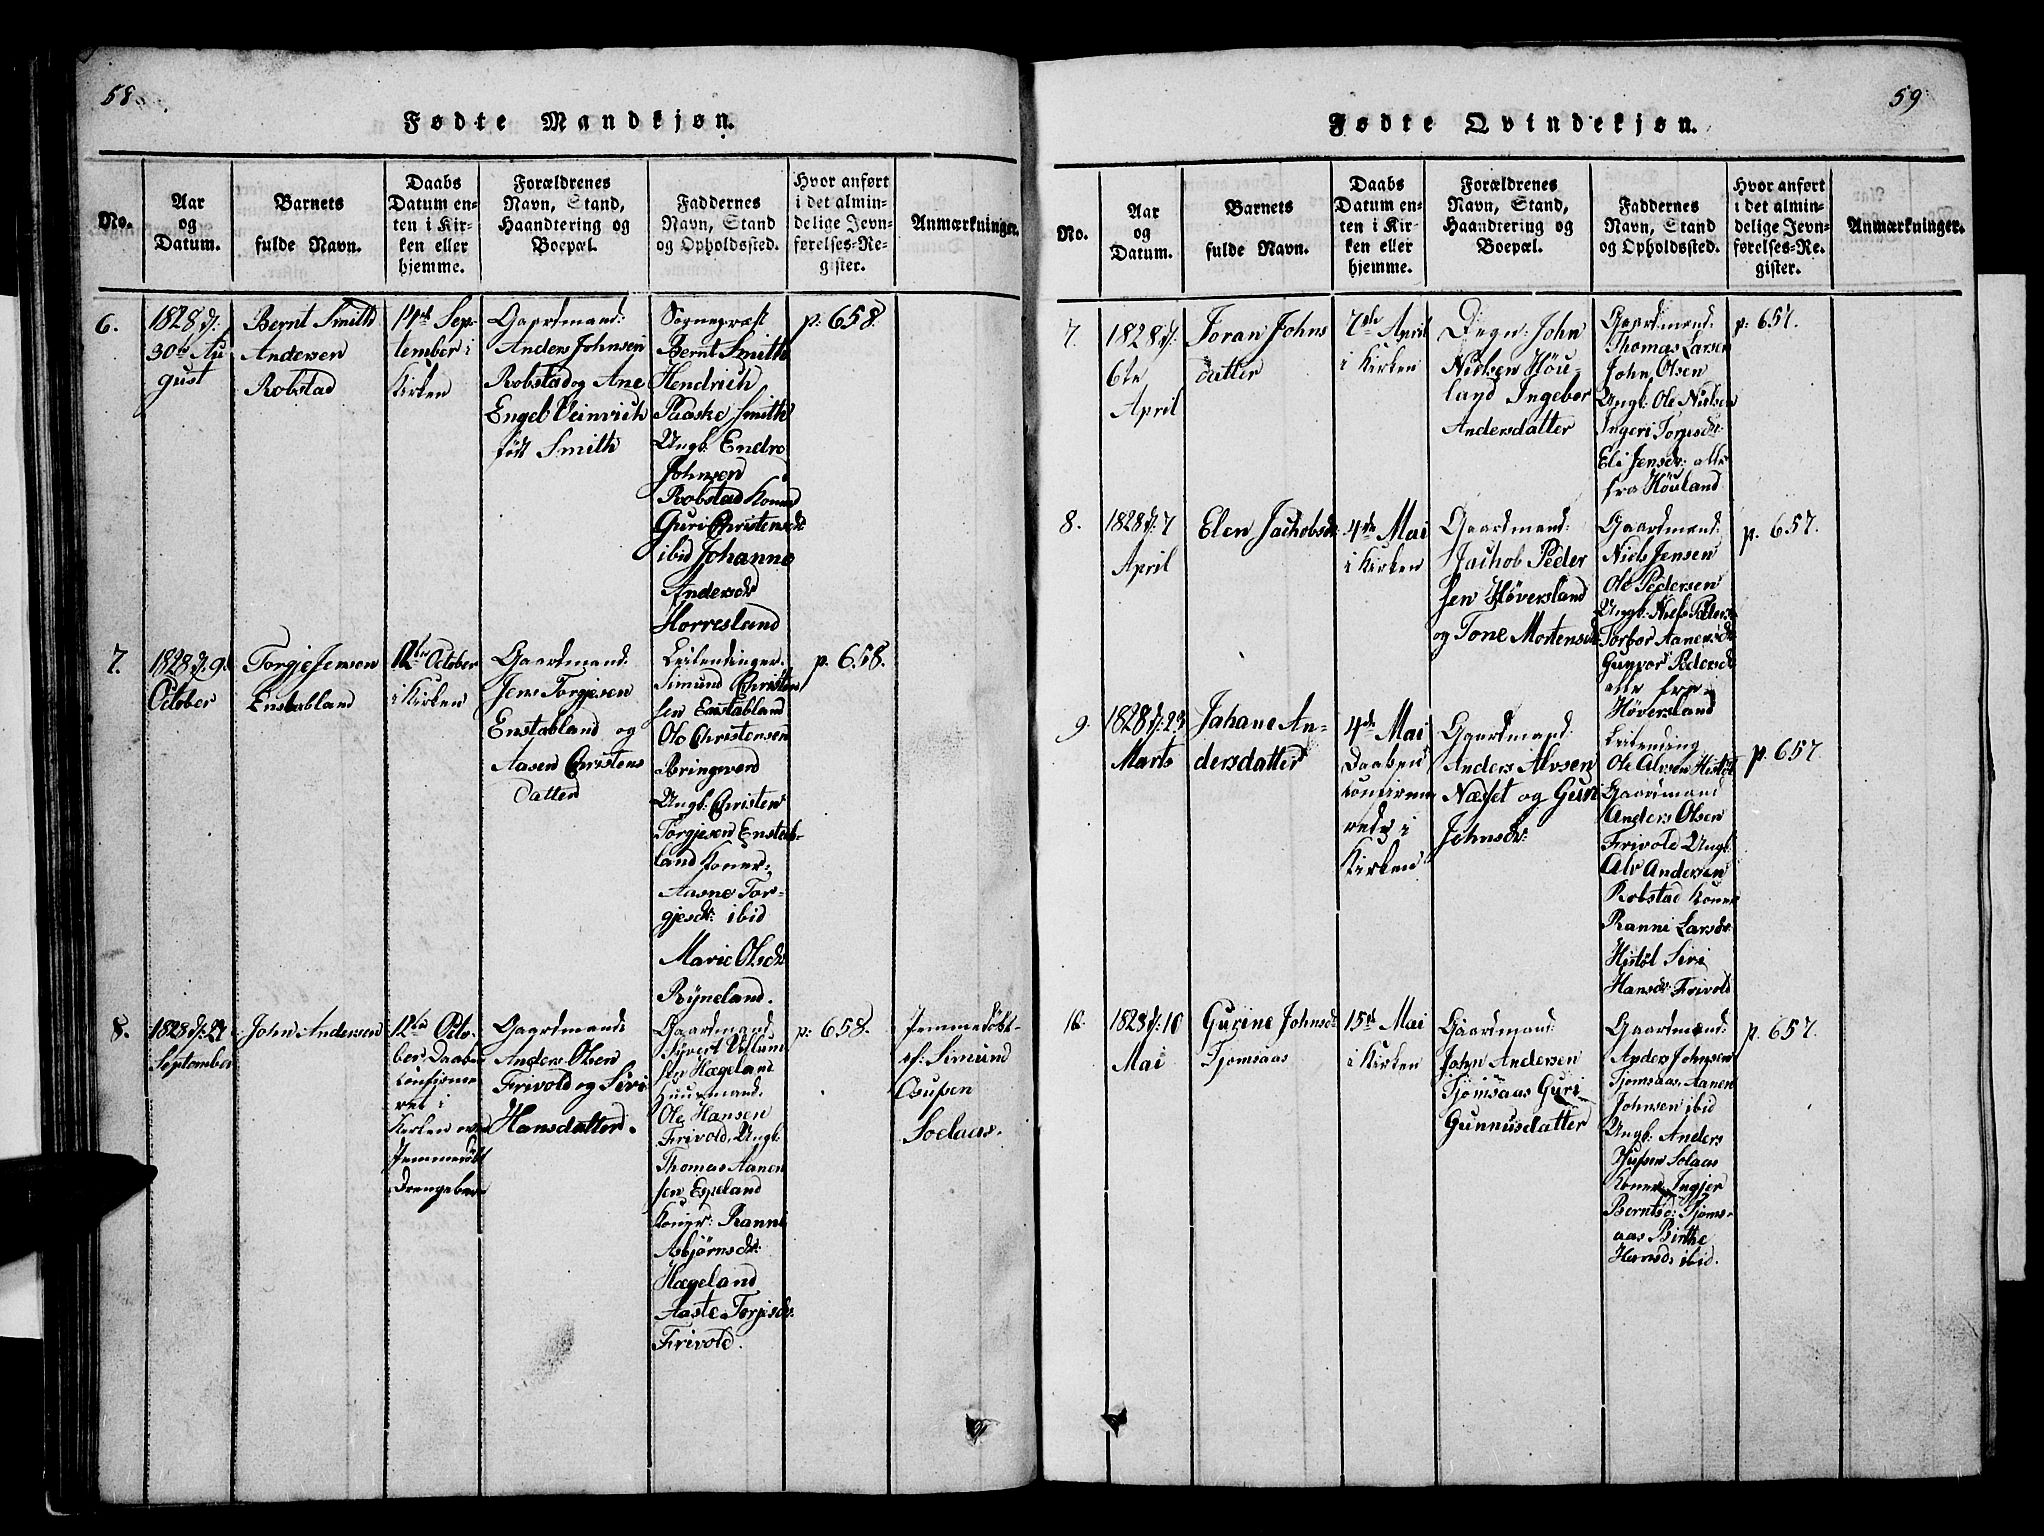 58
Fødte Mandkjøn.
No.
Aar
og
Datum.
Barnets
fulde Navn.
Daabs
Datum en-
ten i Kir-
ken eller
hjemme.
Forældrenes
Navn, Stand,
Haandtering og
Boepæl.
Faddernes
Navn, Stand
og Opholdssted.
Hvor anført
i det almin-
delige Jevn-
førelses-Re-
gister.
Anmærkninger.
6.
1828 d:
30te Au
gust
Bernt Smith
Andersen
Robstad
14de Sep-
tember i
Kirken
Gaardmand:
Anders Johnsen
Robstad og Ane
Engel Heinrich
født Smith
Sognepræst
Bernt Smith
Hendrich
Paaske Smith
Ungk: Endre
Johnsen
Robstad Koner
Guri Christensdr
ibid Johanne
Andersdr
Horresland
p: 658.
7.
1828 d: 9de
October
Torgje Jensen
Enstabland
12te October
i Kirken
Gaardmand:
Jens Torgjesen
Enstabland og
Aasen Christens
datter
Leilendinger.
Simund Christen
sen Enstabland
Ole Christensen
Bringsverd
Ungk: Christen
Torgjesen Enstab-
land Koner:
Aasne Tor-
gjesdr: ibid
Marie Olsdr
Ryneland.
p. 658.
8.
1828 d: 24
September
John Andersen
12te Octo-
ber. Daaben
confirme
ret i
Kirken over
hjemmedøbt
Drengebarn
Gaardmand:
Anders Olsen
Frivold og Siri
Hansdatter.
Gaardmand
Syvert Villum
sen Hægeland
Huusmand:
Ole Hansen
Frivold, Ungk:
Thomas Aanen
sen Espeland
Koner: Ranni
Asbjørnsdr:
Hægeland
Aaste Torjesdr:
Frivold.
p: 658.
hjemmedøbt
af: Simund
Solaas.
59
Fødte Qvindekjøn.
No.
Aar
og
Datum.
Barnets
fulde Navn.
Daabs
Datum en-
ten i Kir-
ken eller
hjemme.
Forældrenes
Navn, Stand,
Haandtering og
Boepæl.
Faddernes
Navn, Stand
og Opholdssted.
Hvor anført
i det almin-
delige Jevn-
førelses-Re-
gister.
Anmærkninger.
7.
1828 d:
6te
April
Joran Johns
datter
7de April
i Kirken
Degn: John
Nielsen Høu-
land Ingebor
Andersdatter
Gaardmand:
Thomas Larsen
John Olsen
Ungk: Ole Nielsen
Ingeri Torjesdr:
Eli Jensdr: alle
fra Høuland
p: 657.
8.
1828 d: 7
April
Elen Jachobsdr:
4de Mai
i Kirken
Gaardmand:
Jachob Peder
sen Høversland
og Tone Mortensdr
Gaardmand:
Niels Jensen
Ole Pedersen
Ungk: Niels Peders:
Torbor Aanensdr
Gunvor Pedersdr
alle fra
Høversland
p. 657.
9.
1828 d: 23
Marts
Jahane An-
dersdatter
4de Mai
Daaben
confirme
redes i
Kirken
Gaardmand:
Anders Alvsen
Næsset og Guri
Johnsdr:
Leilending
Ole Alvsen Histøl
Gaardmand
Anders Olsen
Frivold Ungk:
Alv Andersen
Robstad Koner
Ranni Larsdr
Histøl Siri
Hansdr: Frivold
p. 657.
10.
1828 d: 10
Mai
Gurine Johnsdr
Tjomsaas
15de Mai
i Kirken
Gaardmand:
John Andersen
Tjomsaas Guri
Gunnusdatter
Gaardmand:
Anders Johnsen
Tjomsaas, Aanen
Johnsen ibid
Ungk: Anders
Solaas
Koner, Ingjer
Berntsd: Tjoms-
aas Birthe
Hansd: ibid.
p. 657.